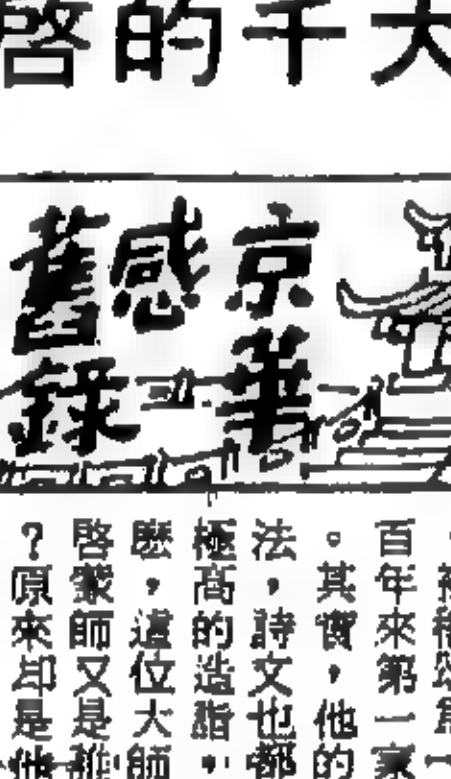 大千的啓
京華
感舊錄
百年來第一家
。其實，他的
法，詩文也都
極高的造詣，
麽，這位大師
啓蒙師又是誰
？原來却是他